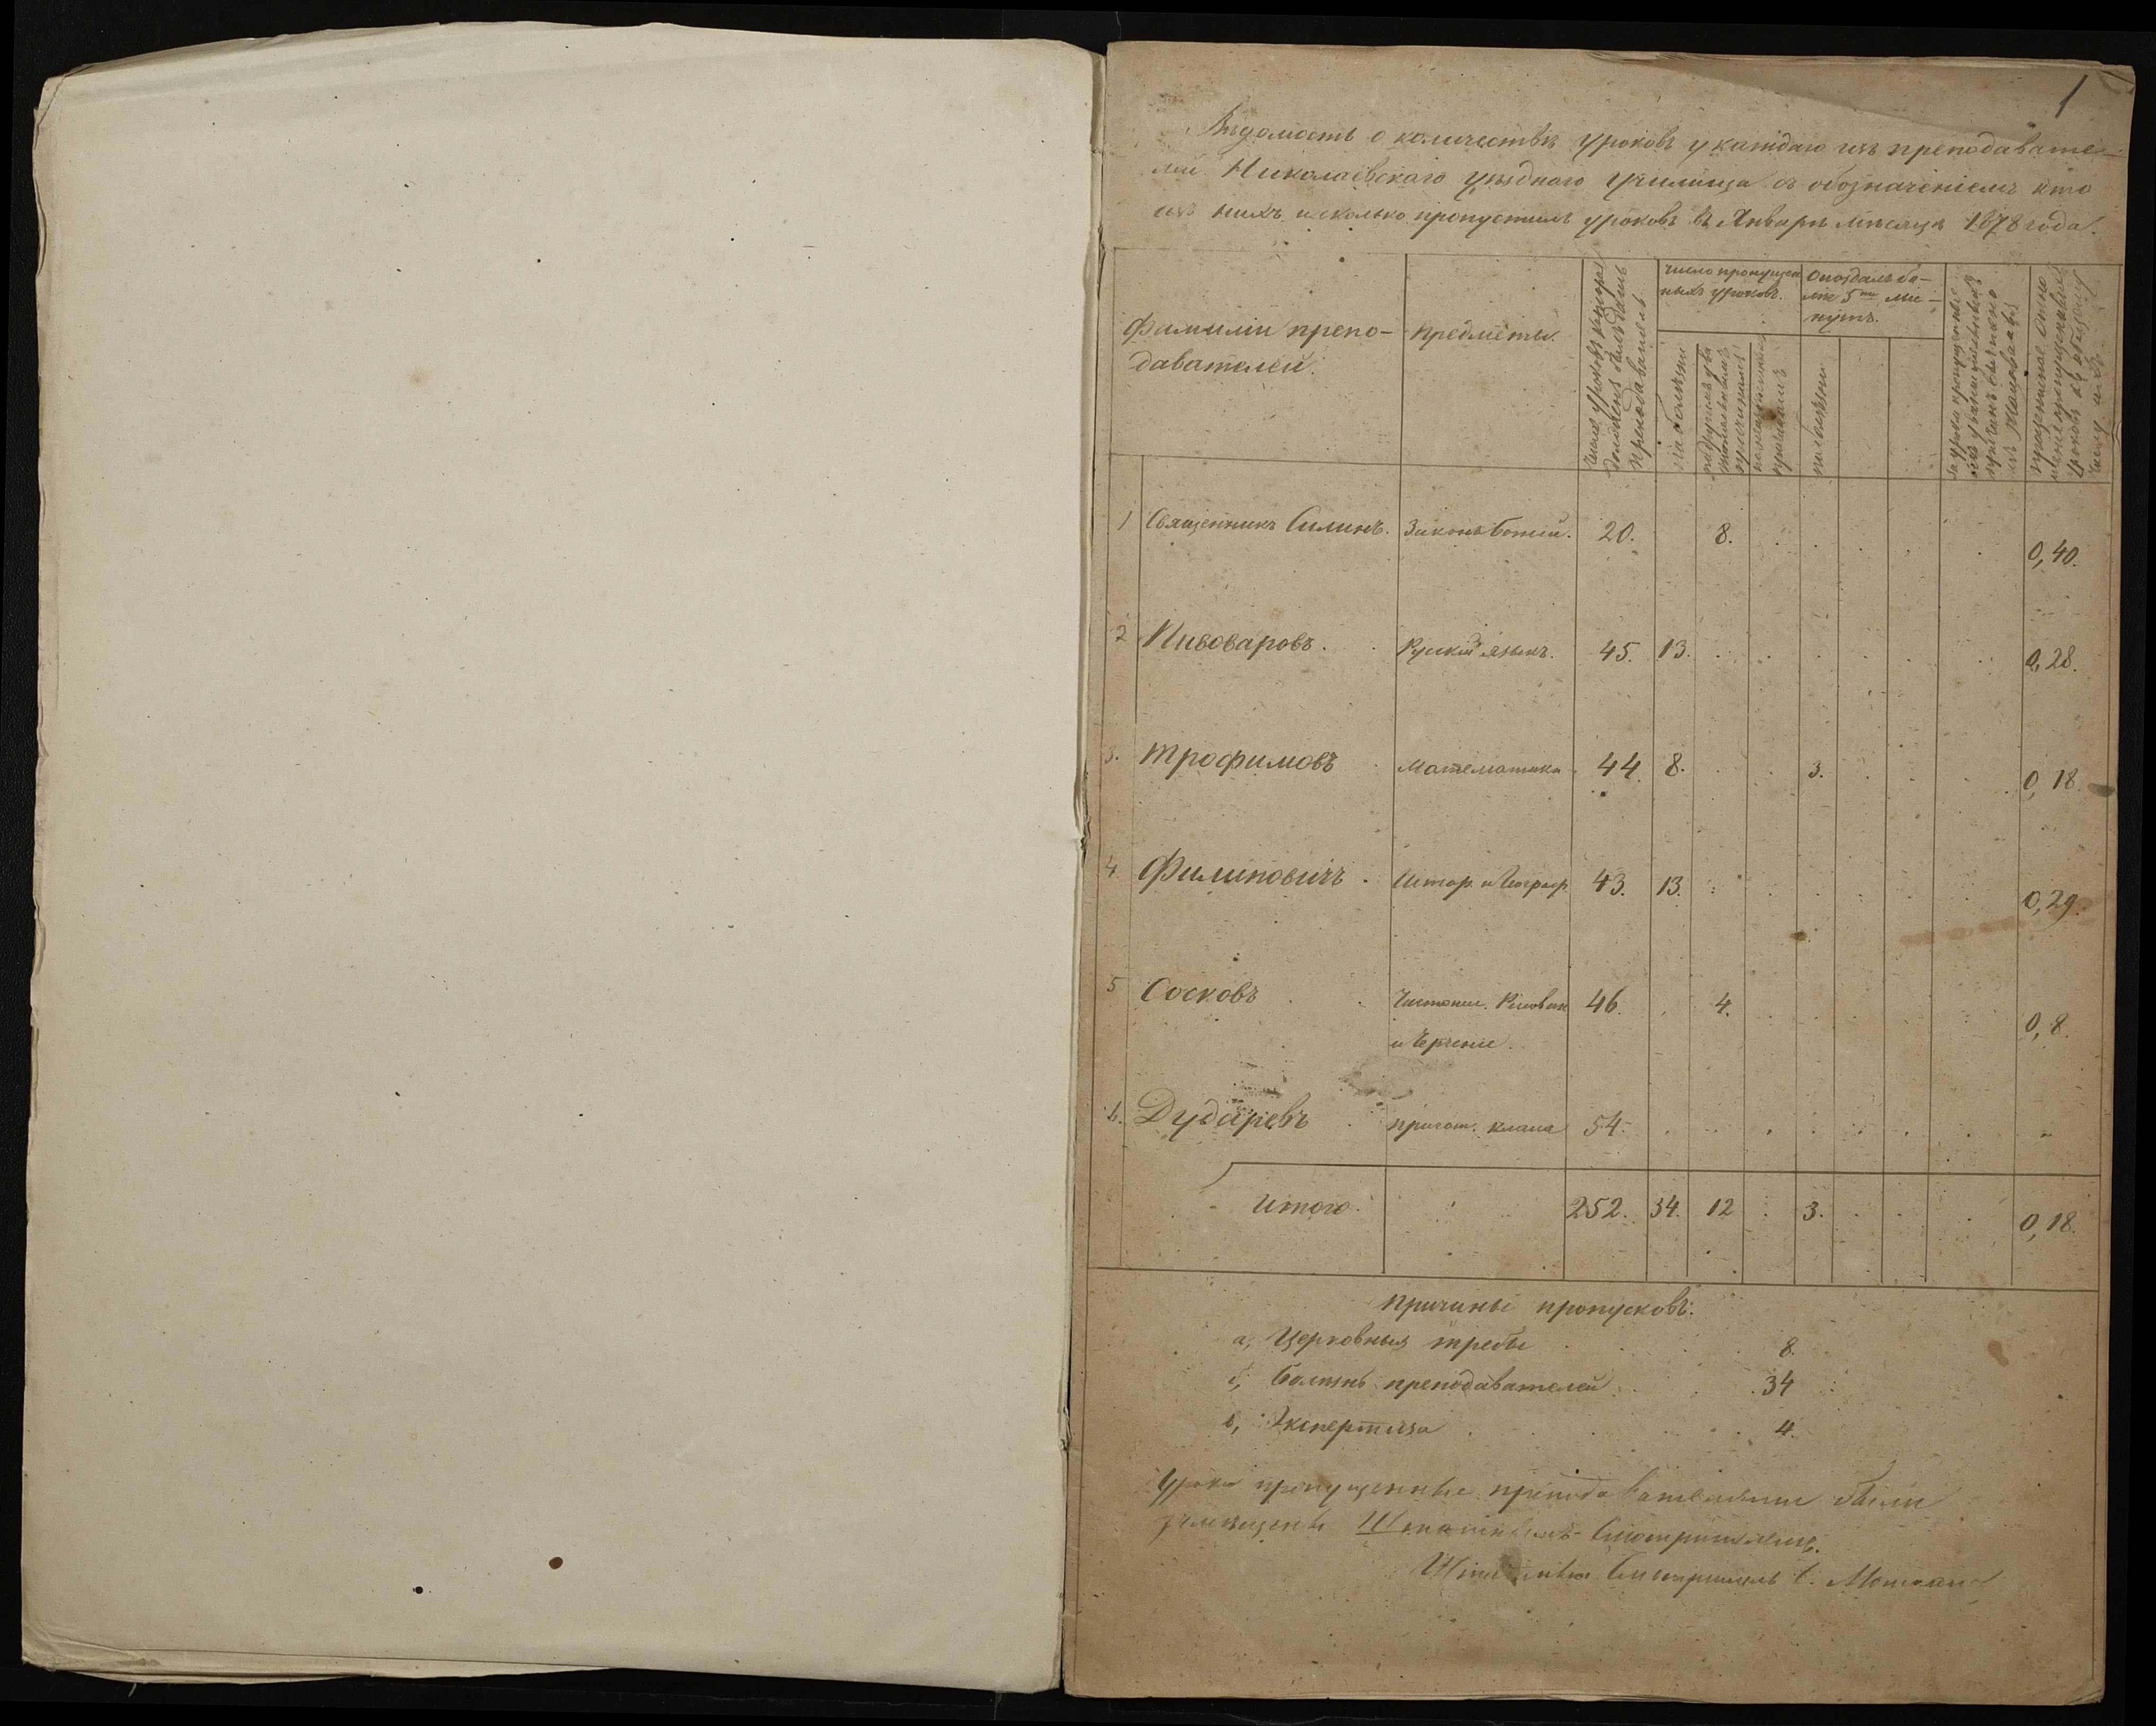 1
Вѣдомость о количествѣ уроковъ у каждаго изъ преподавате-
лей Николаевскаго уѣзднаго Училища съ обозначеніемъ кто
изъ нихъ и сколько пропустилъ уроковъ въ Январѣ мѣсяцѣ 1878 года.
Фамиліи препо-
давателей.
Предметы.
Число уроковъ которые
долженъ былъ дать
преподаватель
Число пропущен
ныхъ уроковъ.
по болѣзни
по другимъ ува
жительнымъ
причинамъ
причинамъ
Опоздалъ бо-
лѣе 5ти ми-
нутъ.
по болѣзни
За уроки пропущенные
уроковъ къ общему
числу ихъ.
1 Священникъ Силинъ. Законъ Божій. 20. 8. 0,40.
2 Пивоваровъ. Русскій языкъ. 45. 13. 0,28.
3. Трофимовъ Математика 44. 8. 3. 0,18.
4 Филиповичъ. Истор. и Географ. 43. 13. 0,29.
5 Сосковъ Чистопис. Рисован 46. 4. 0,8.
и Черченіе.
6. Дударевъ пригот. классъ 54.
Итого. 252. 34. 12 3. 0,18.
Причины пропусковъ:
а, Церковныя требы 8.
б, Болѣзнь преподавателей 34
в, Экспертиза 4.
Уроки пропущенные преподавателями были
замѣщены Штатнымъ Смотрителемъ.
Штатный Смотритель